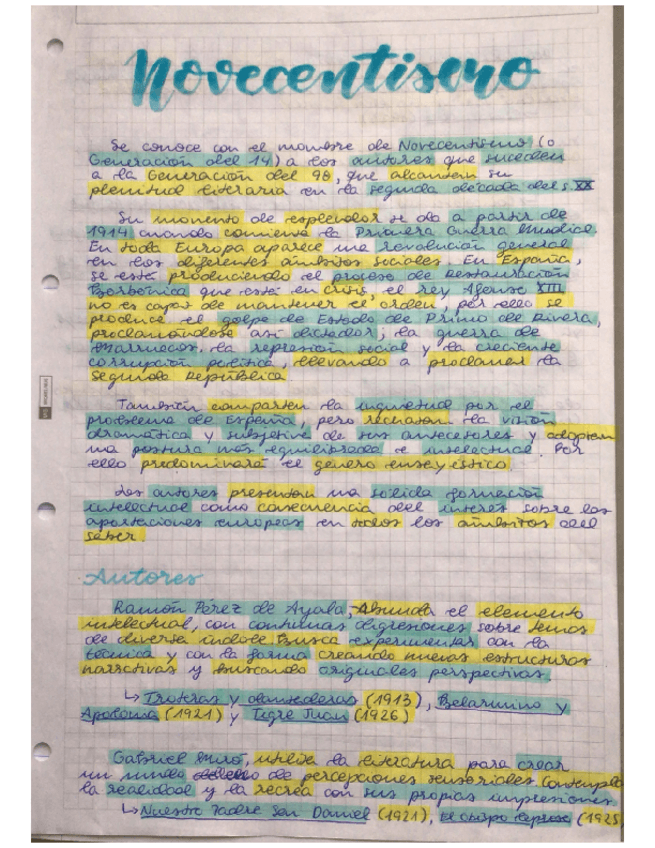 Novecentismo
Se conoce con el nombre de Novecentismo (o
Generación del 14) a los autores que suceden
a la Generación del 98, que alcanzan su
plenitud literaria en la segunda década del s. XX
Su momento de esplendor se da a partir de
1914 cuando comienza la Primera Guerra Mundial.
En toda Europa aparece una revolución general
en los diferentes ámbitos sociales. En España,
se está produciendo el proceso de Restauración
Borbónica que está en crisis, el rey Alfonso XIII
no es capaz de mantener el orden, por ello se
produce el golpe de Estado de Primo de Rivera,
proclamándose así dictador; la guerra de
Marruecos, la represión social y la creciente
corrupción política, llevando a proclamar la
Segunda República
También comparten la inquietud por el
problema de España, pero rechazan la visión
dramática y subjetiva de sus antecesores y adoptan
una postura más equilibrada e intelectual. Por
ello predominará el género ensayístico.
Los autores presentan una sólida formación
intelectual como consecuencia del interés sobre las
aportaciones europeas en todos los ámbitos del
saber.
Autores
Ramón Pérez de Ayala, Abunda el elemento
intelectual, con continuas digresiones sobre temas
de diversa índole. Busca experimentar con la
técnica y con la forma creando nuevas estructuras
narrativas y buscando originales perspectivas.
↳ Troteras y danzaderas (1913), Belarmino y
Apolonio (1921) y Tigre Juan (1926)
Gabriel Miró, utiliza la literatura para crear
un mundo de percepciones sensoriales. Contempla
la realidad y la recrea con sus propias impresiones.
↳ Nuestro Padre San Daniel (1921), El obispo leproso (1925